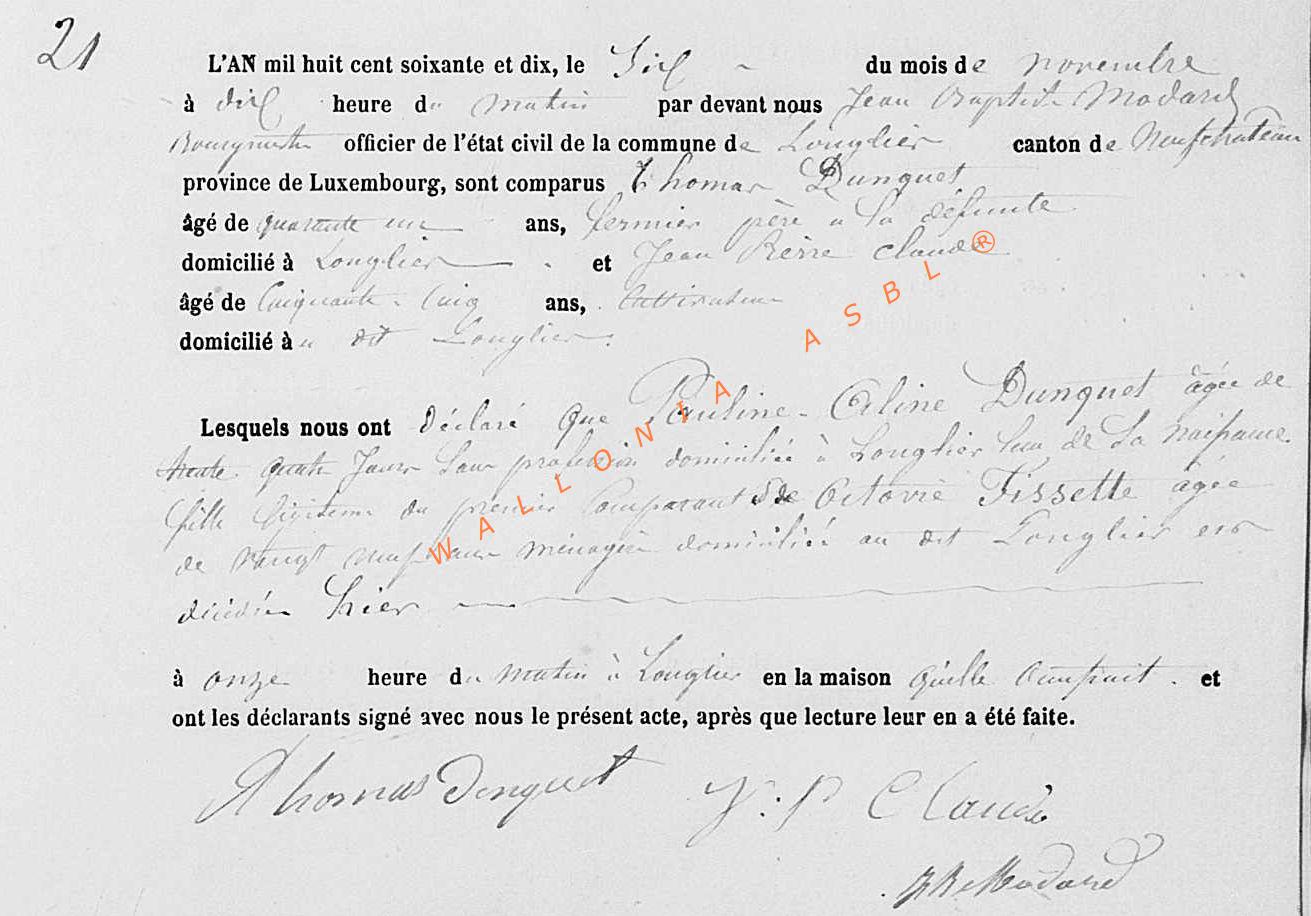 21
L'AN mil huit cent soixante et dix, le Six du mois de novembre
à dix heure du matin par devant nous Jean Baptiste Modard
Bourgmestre officier de l'état civil de la commune de Longlier canton de Neufchateau
province de Luxembourg, sont comparus Thomas Dunquet
âgé de quarante un ans, fermier père à la défunte
domicilié à Longlier et Jean Pierre Claude
âgé de Cinquante Cinq ans, Cultivateur
domicilié au dit Longlier.
Lesquels nous ont déclaré que Pauline-Celine Dunquet âgée de
trente quatre Jours Sans profession domiciliée à Longlier lieu de Sa naissance
fille légitime du premier Comparant & de Octavie Fissette âgée
de vingt neuf ans ménagère domiciliée au dit Longlier est
décédée hier
à onze heure du matin à Longlier en la maison qu'elle occupait. et
ont les déclarants signé avec nous le présent acte, après que lecture leur en a été faite.
Thomas Dunquet J. P Claude
JB Modard
WALLONIA ASBL ®